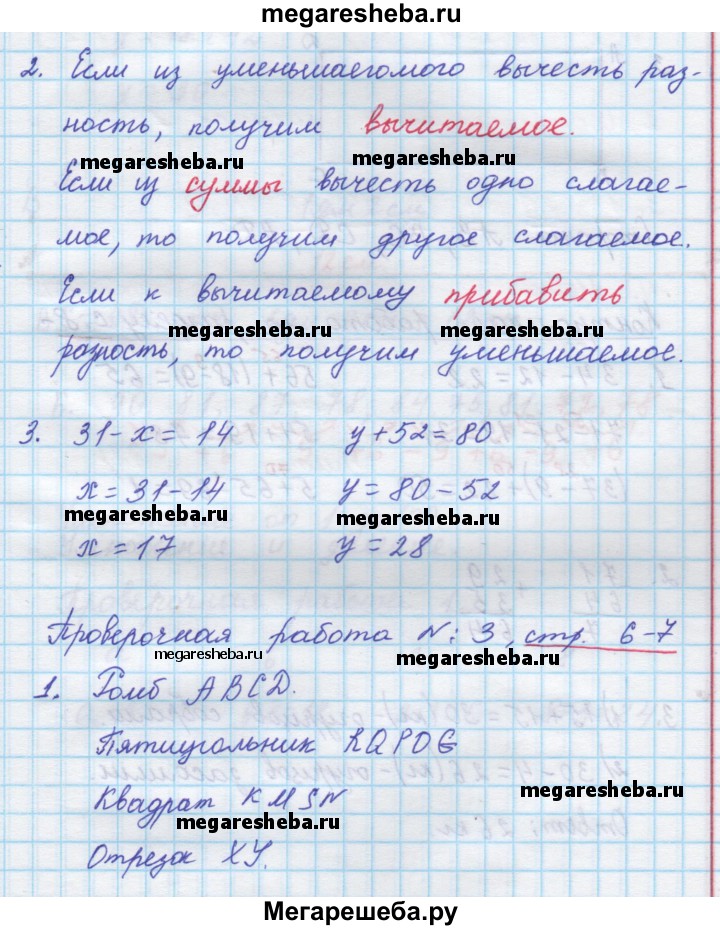 megaresheba.ru
2. Если из уменьшаегомого вычесть раз-
ность, получим вычитаемое.
megaresheba.ru megaresheba.ru
Если из суммы вычесть одно слагае-
мое, то получим другое слагаемое.
Если к вычитаемому прибавить
megaresheba.ru megaresheba.ru
разность, то получим уменьшаемое.
3. 31-x=14 y+52=80
x=31-14 y=80-52
megaresheba.ru megaresheba.ru
x=17 y=28
Проверочная работа №: 3, стр. 6-7
megaresheba.ru megaresheba.ru
1. Ромб ABCD.
Пятиугольник RQPOG
megaresheba.ru
Квадрат KMSN
megaresheba.ru
Отрезок XY.
Мегарешеба.ру